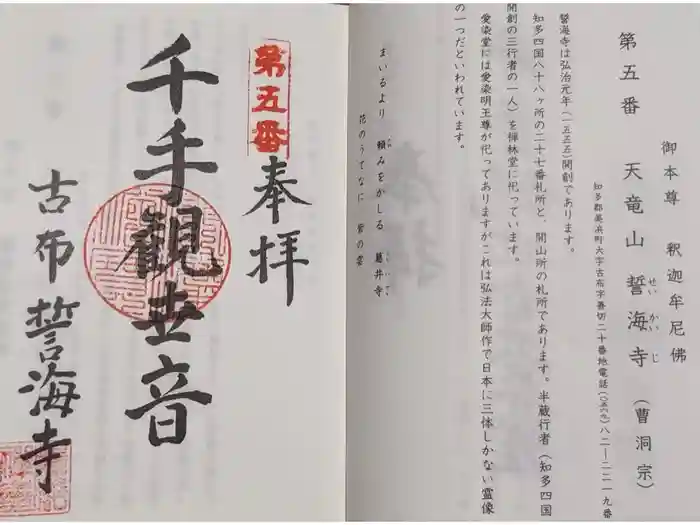 御本尊　釈迦牟尼佛
第五番　天竜山　誓海寺（曹洞宗）
せいかいじ
知多郡美浜町大字古布字善切二十番地電話（〇五六九）八二―二二一九番
誓海寺は弘治元年（一五五五）開創であります。
知多四国八十八ヶ所の二十七番札所と、開山所の札所であります。半蔵行者（知多四国
開創の三行者の一人）を禅林堂に祀っています。
愛染堂には愛染明王尊が祀ってありますがこれは弘法大師作で日本に三体しかない霊像
の一つだといわれています。
まいるより　頼みをかくる　葛井寺
花のうてなに　紫の雲
第五番
奉拝
千手観世音
古布　誓海寺